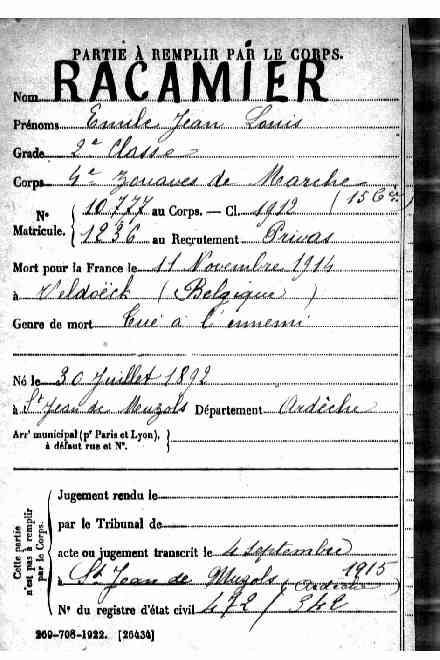 PARTIE À REMPLIR PAR LE CORPS.
Nom RACAMIER
Prénoms Emile Jean Louis
Grade 2e Classe
Corps 4e Zouaves de Marche
(15 Cie)
N° Matricule. { 10.777 au Corps. — Cl. 1912
1236 au Recrutement Privas
Mort pour la France le 11 Novembre 1914
à Veldoëck (Belgique)
Genre de mort Tué à l'ennemi
Né le 30 Juillet 1892
à St Jean de Muzols Département Ardèche
Arrt municipal (pr Paris et Lyon), à défaut rue et N°. }
Cette partie n'est pas à remplir par le Corps.
Jugement rendu le
par le Tribunal de
acte ou jugement transcrit le 4 Septembre
1915
à St Jean de Muzols (Ardèche)
N° du registre d'état civil 472 / 342
269-708-1922. [26434]